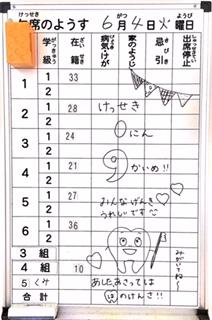 席のようす 6月4日火曜日
けっせき がつ にち ようび
学級
がっきゅう
在籍
ざいせき
病気けが
家のようじ
忌引
きびき
出席停止
しゅっせきていし
1 1 33
2
2 1 28 けっせき
2
3 1 24 0にん
2
4 1 21 9かいめ!!
2
5 1 27 みんなげんき
2 うれしいです
6 1 36
2
3組
4組 10 みがいてね〜
5くみ あした、あさっては
合計 はのけんさ!!